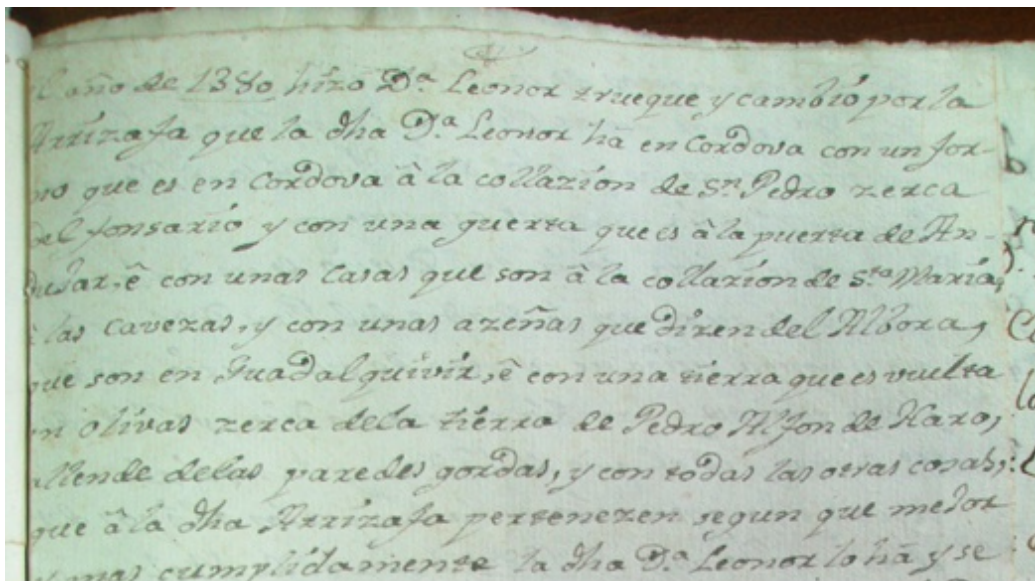 el año de 1380 hizo D.ª Leonor trueque y cambió por la
Arrizafa que la dha D.ª Leonor hā en Cordova con un for-
no que es en Cordova â la collazion de S.n Pedro zerca
del fonsario y con una guerta que es â la puerta de An-
dujar, ê con unas Casas que son â la collazion de S.ta Maria,
â las Cavezas, y con unas azeñas que dizen del Albora,
que son en Guadalquivir, ê con una tierra que es vuelta
en olivas zerca de la tierra de Pedro Alfon de Haro,
allende de las paredes gordas, y con todas las otras cosas,
que â la dha Arrizafa pertenezen segun que mejor
y mas cumplidamente la dha D.ª Leonor lo hā y se